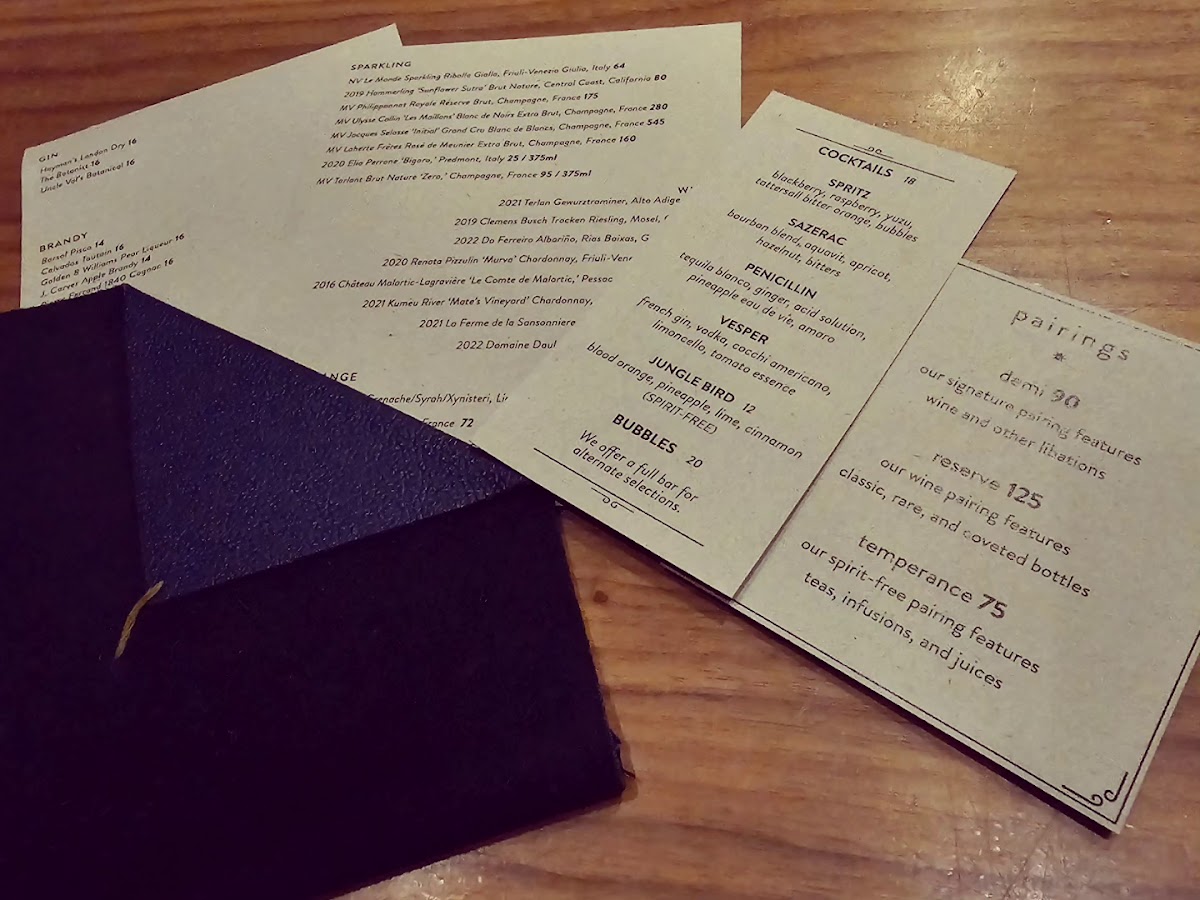 GIN
Hayman's London Dry 16
The Botanist 16
Uncle Val's Botanical 16
BRANDY
Barsol Pisco 14
Calvados Toutain 16
Golden 8 Williams Pear Liqueur 16
J. Carver Apple Brandy 14
Pierre Ferrand 1840 Cognac 16
SPARKLING
NV Le Monde Sparkling Ribolla Gialla, Friuli-Venezia Giulia, Italy 64
2019 Hammerling 'Sunflower Sutra' Brut Nature, Central Coast, California 80
MV Philipponnat Royale Réserve Brut, Champagne, France 175
MV Ulysse Collin 'Les Maillons' Blanc de Noirs Extra Brut, Champagne, France 280
MV Jacques Selosse 'Initial' Grand Cru Blanc de Blancs, Champagne, France 545
MV Laherte Frères Rosé de Meunier Extra Brut, Champagne, France 160
2020 Elio Perrone 'Bigaro,' Piedmont, Italy 25 / 375ml
MV Tarlant Brut Nature 'Zero,' Champagne, France 95 / 375ml
2021 Terlan Gewurztraminer, Alto Adige
2019 Clemens Busch Trocken Riesling, Mosel,
2022 Do Ferreiro Albariño, Rias Baixas,
2020 Renata Pizzulin 'Murva' Chardonnay, Friuli-Vene
2016 Château Malartic-Lagravière 'Le Comte de Malartic,' Pessac
2021 Kumeu River 'Mate's Vineyard' Chardonnay,
2021 La Ferme de la Sansonniere
2022 Domaine Daul
NGE
Grenache/Syrah/Xynisteri,
France 72
COCKTAILS 18
SPRITZ
blackberry, raspberry, yuzu,
tattersall bitter orange, bubbles
SAZERAC
bourbon blend, aquavit, apricot,
hazelnut, bitters
PENICILLIN
tequila blanco, ginger, acid solution,
pineapple eau de vie, amaro
VESPER
french gin, vodka, cocchi americano,
limoncello, tomato essence
JUNGLE BIRD 12
blood orange, pineapple, lime, cinnamon
(SPIRIT-FREE)
BUBBLES 20
We offer a full bar for
alternate selections.
DG
pairings
demi 90
our signature pairing features
wine and other libations
reserve 125
our wine pairing features
classic, rare, and coveted bottles
temperance 75
our spirit-free pairing features
teas, infusions, and juices